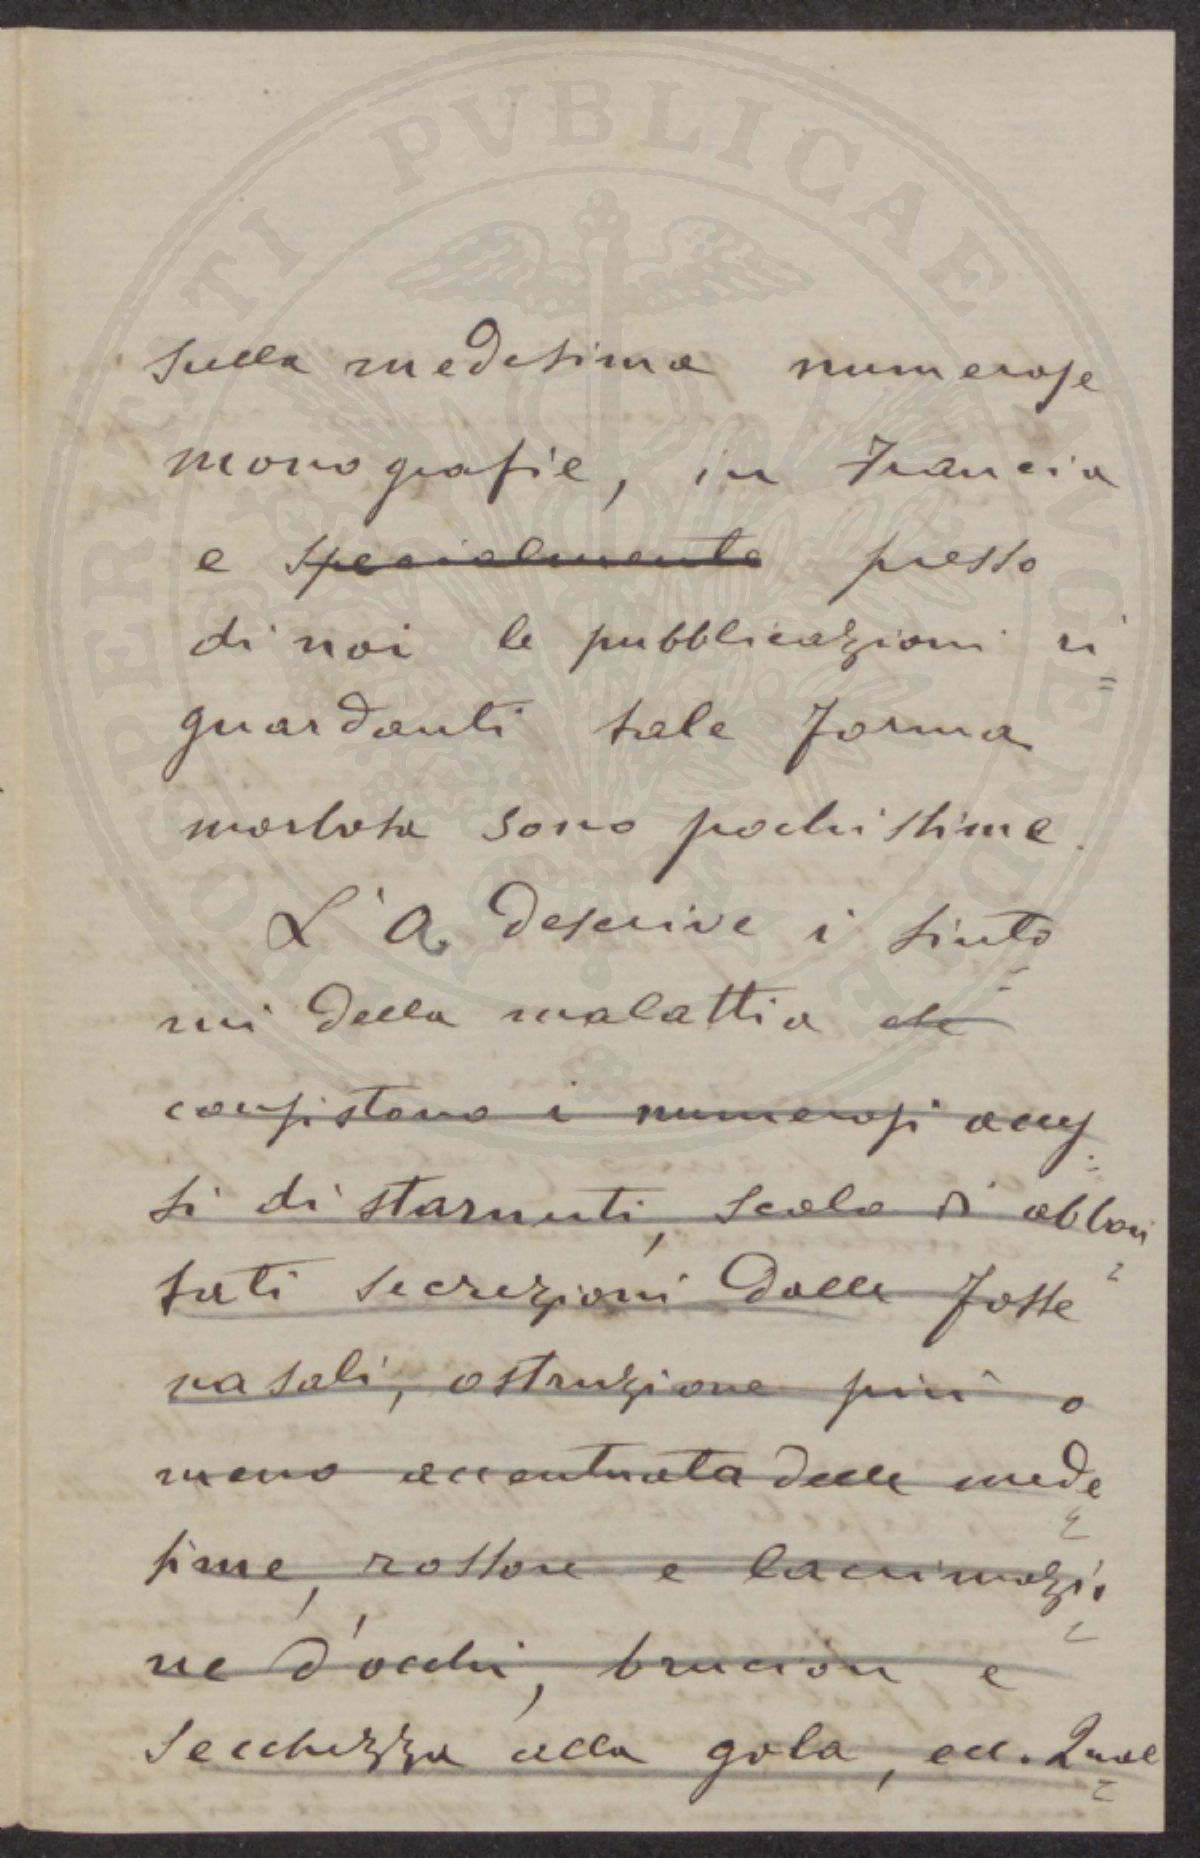 PROSPERITATI PVBLICAE AVGENDAE
sulla medesima numerose
monografie, in Francia
e specialmente presso
di noi le pubblicazioni ri=
guardanti tale forma
morbosa sono pochissime.
L'A. descrive i sinto-
mi della malattia che
consistono i numerosi acces=
si di starnuti, scolo di abbon-
tati secrezioni dalle fosse
nasali, ostruzione più o
meno accentuata delle mede-
sime, rossore e lacrimazio-
ne d'occhi, brucior e
secchezza alla gola, ecc. Qual-